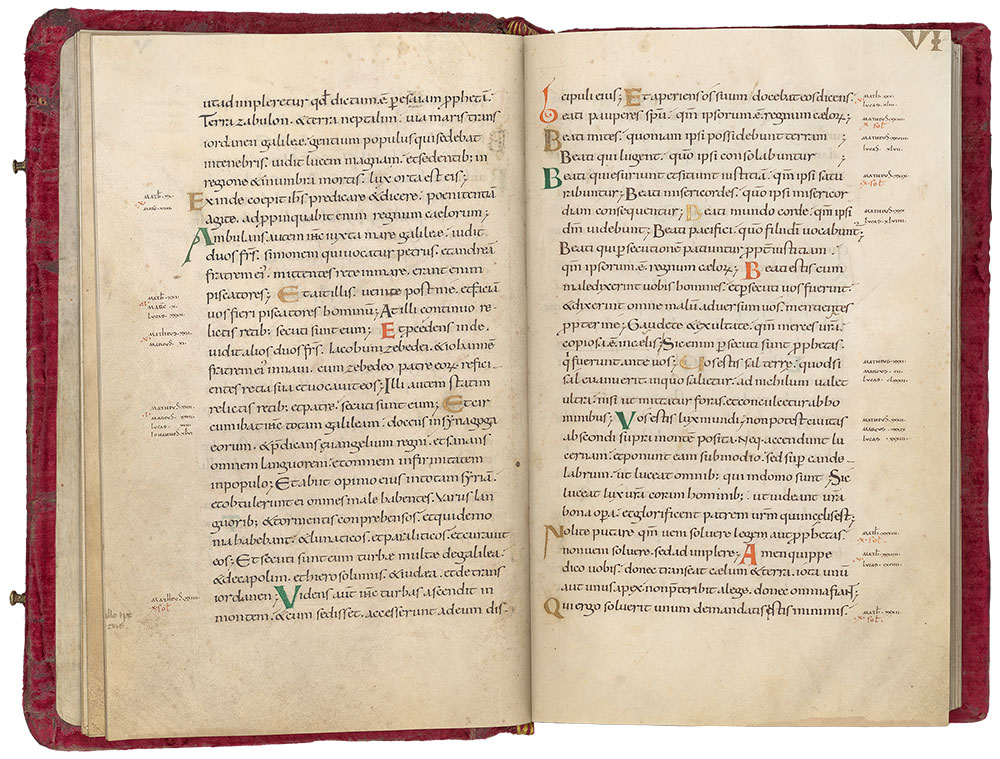 ut ad impleretur qđ dictum ē p esaiam pphetā.
Terra zabulon & terra neptalim. uia maris trans
iordanen galileę. gentium populus qui sedebat
in tenebris. uidit lucem magnam. et sedentib; in
regione & in umbra mortis. lux orta est eis;
Exinde coepit ihs predicare & dicere. poenitentiā
agite. adppinquabit enim regnum caelorum;
Ambulans autem ihc iuxta mare galileę. uidit
duos frs. simonem qui uocatur petrus. et andreā
fratrem ei'. mittentes rete in mare. erant enim
piscatores; Et ait illis. uenite post me. et faciā
uos fieri piscatores hominū; At illi continuo re
lictis retib; secuti sunt eum; Et pcedens inde.
uidit alios duos frs. Iacobum zebedei. & iohannē
fratrem ei' in naui. cum zebedeo patre eorum refici
entes retia sua et uocauit eos; Illi autem statim
relictis retib; et patre. secuti sunt eum; Et cir
cumibat ihc totam galileam. docens in synagoga
eorum. & pdicans euangelium regni. et sanans
omnem languorem. et omnem infirmitatem
in populo; Et abiit opinio eius in totam syriā.
et obtulerunt ei omnes male habentes. uarus lan
guorib; & tormentis comprehensos. et qui demo
nia habebant. & lunaticos. et paraliticos. et curauit
eos; Et secuti sunt eum turbę multe de galilea.
& decapolim. et hierosolimis. & iudęa. et de trans
iordanen; Videns aut ihc turbas ascendit in
montem. & cum sedisset. accesserunt ad eum dis-
Math. xx.
Marc. viii.
Math. xxi.
Marc. x.
Lucas. xxxii.
Matheus. xxii.
Marcus. xi.
VI
cipuli eius; Et aperiens os suum docebat eos dicens.
beati pauperes spu. qm ipsorum ē regnum cęlorꝝ;
Beati mites. quoniam ipsi possidebunt terram
Beati qui lugent. quo ipsi consolabuntur
Beati qui esuriunt et sitiunt iustitiā. qm ipsi satu
rabuntur; Beati misericordes. quo ipsi misericor
diam consequentur; Beati mundo corde. qm ipsi
dm uidebunt; Beati pacifici. quo filii di uocabunt;
Beati qui psecutionē patiuntur ppt iustitiam.
qm ipsorum ē. regnum cęlorꝝ; Beati estis cum
maledixerint uobis homines. et psecuti uos fuerint.
& dixerint omne malū. aduersum uos. mentientes
ppter me; Gaudete & exultate. qm merces urā
copiosa ē in cęlis; Sic enim psecuti sunt pphetas.
q̇ fuerunt ante uos; Uos estis sal terrę. quod si
sal euanuerit. in quo salietur. ad nihilum ualet
ultra; nisi ut mittatur foras. et conculcetur ab ho
minibus; Vos estis lux mundi; non potest ciuitas
abscondi supra montē posita. Neq; accendunt lu
cernam. et ponunt eam sub modio. sed sup cande
labrum. ut luceat omnib; qui in domo sunt Sic
luceat lux urā coram hominib; ut uideant urā
bona opa. et glorificent patrem urm qui in celis est;
Nolite putare qm ueni soluere legem aut pphetas.
non ueni soluere. sed ad implere; Amen quippe
dico uobis. donec transeat cęlum & terra. iota unū
aut unus apex non pteribit a lege. donec omnia fiant;
Qui ergo soluerit unum de mandatis istis minimis.